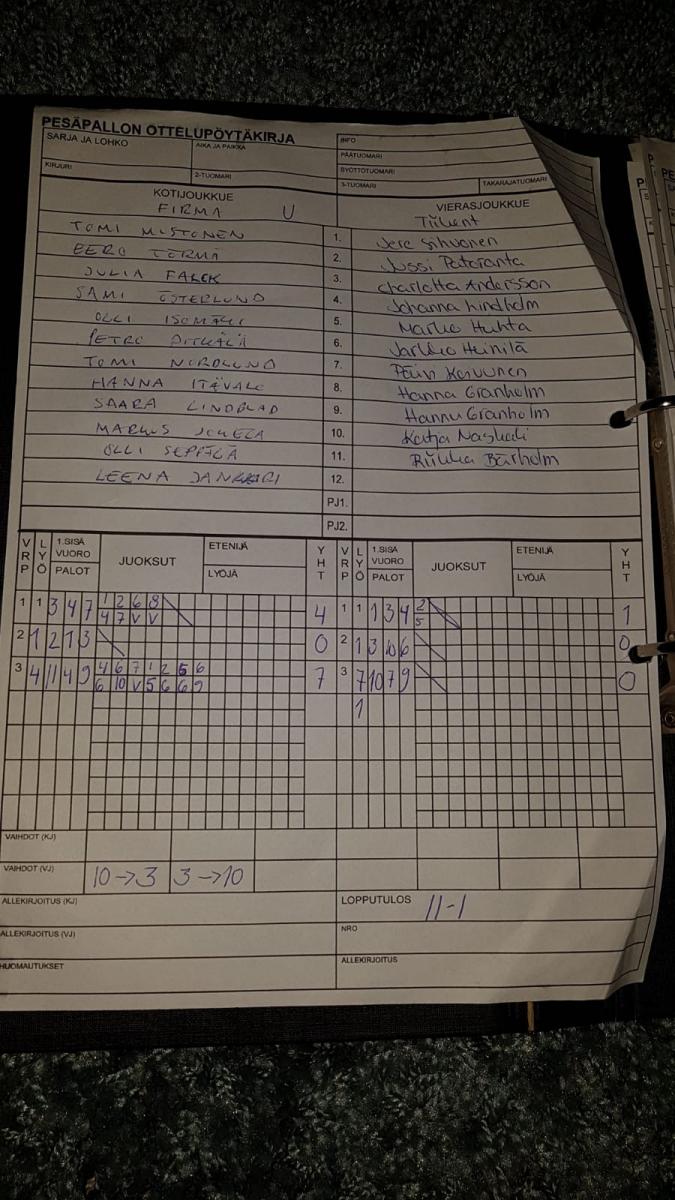 PESÄPALLON OTTELUPÖYTÄKIRJA
SARJA JA LOHKO AIKA JA PAIKKA INFO
PÄÄTUOMARI
KIRJURI 2-TUOMARI SYÖTTÖTUOMARI
3-TUOMARI TAKARAJATUOMARI
KOTIJOUKKUE VIERASJOUKKUE
FIRMA U Tiikent
TOMI MUSTONEN 1. Jere Sihvonen
EERO TÖRMÄ 2. Jussi Pataranta
JULIA FALCK 3. Charlotta Andersson
SAMI ÖSTERLUND 4. Johanna Lindholm
OLLI ISOMÄKI 5. Marko Huhta
PETRO PITKÄLÄ 6. Jarkko Heinilä
TOMI NORDLUND 7. Päivi Korvonen
HANNA ITÄVALO 8. Hanna Granholm
SAARA LINDBLAD 9. Hannu Granholm
MARKUS JOKELA 10. Katja Naskali
OLLI SEPPÄLÄ 11. Riikka Bärholm
LEENA JANKKARI 12.
PJ1.
PJ2.
VRP LYÖ 1.SISÄ VUORO PALOT JUOKSUT ETENIJÄ LYÖJÄ YHT VRP LYÖ 1.SISÄ VUORO PALOT JUOKSUT ETENIJÄ LYÖJÄ YHT
1 1 3 4 7 1 2 6 8 4 1 1 1 3 4 2 1
4 7 V V 5
2 1 2 1 3 0 2 1 3 10 6 0
3 4 11 4 9 4 6 7 1 2 5 6 7 3 7 10 7 9 0
6 10 V 5 6 6 9
1
VAIHDOT (KJ)
VAIHDOT (VJ) 10→3 3→10
ALLEKIRJOITUS (KJ) LOPPUTULOS 11-1
ALLEKIRJOITUS (VJ) NRO
HUOMAUTUKSET ALLEKIRJOITUS